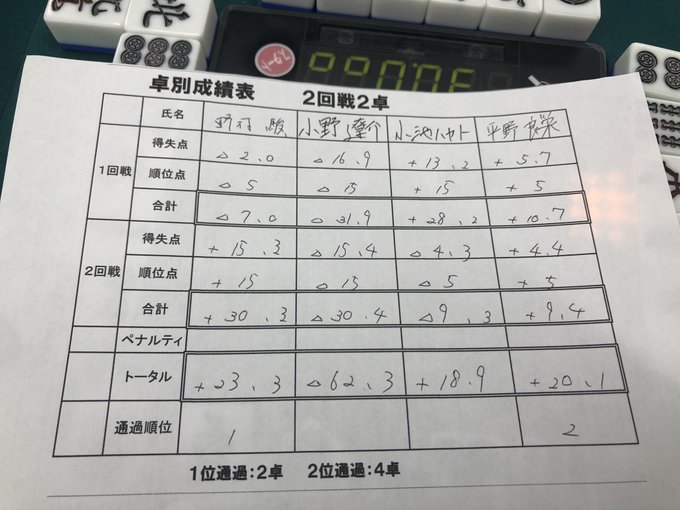 卓別成績表 2回戦2卓
氏名 野村 駿 小野 遼介 小池ハヤト 平野 良栄
1回戦
得失点 △2.0 △16.9 +13.2 +5.7
順位点 △5 △15 +15 +5
合計 △7.0 △31.9 +28.2 +10.7
2回戦
得失点 +15.3 △15.4 △4.3 +4.4
順位点 +15 △15 △5 +5
合計 +30.3 △30.4 △9.3 +9.4
ペナルティ
トータル +23.3 △62.3 +18.9 +20.1
通過順位 1 2
1位通過:2卓 2位通過:4卓